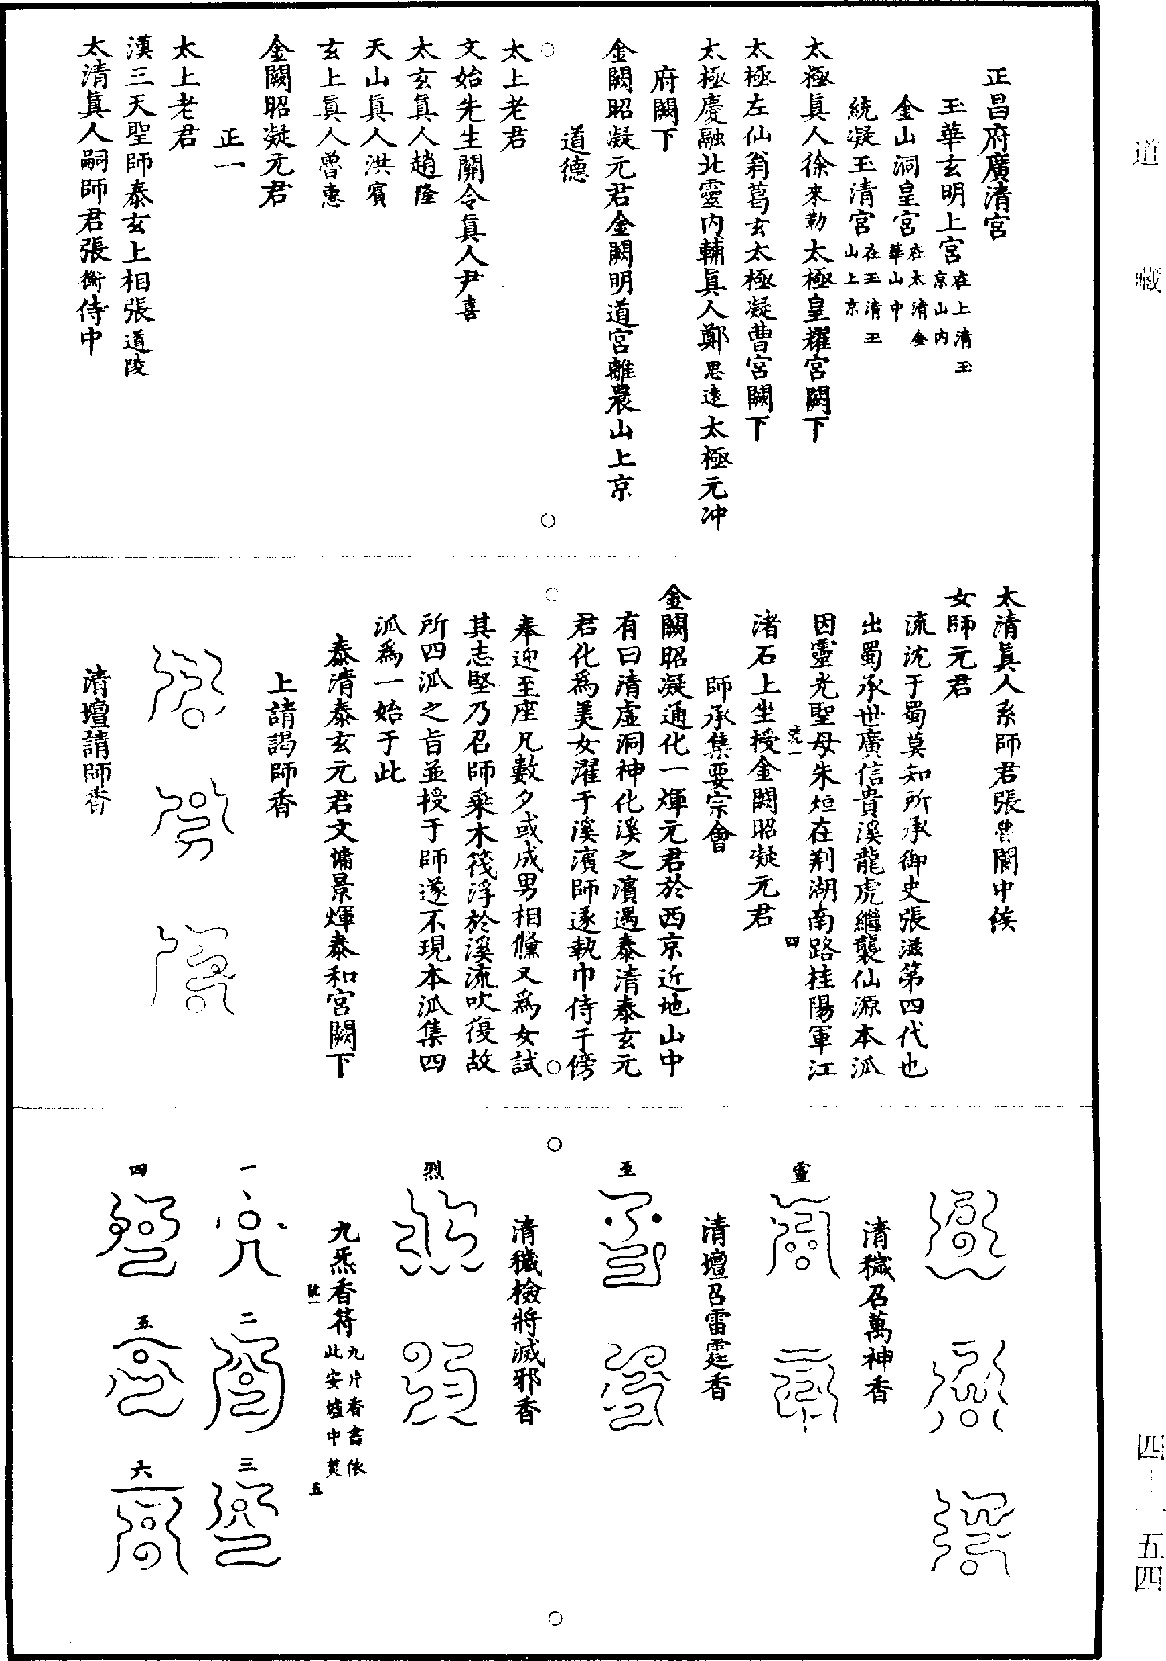 道藏
正昌府廣清宮
玉華玄明上宮在上清玉京山内
金山洞皇宮在太清金華山中
統凝玉清宮在玉清玉山上京
太極眞人徐來勒太極皇耀宮闕下
太極左仙翁葛玄太極凝曹宮闕下
太極慶融北靈内輔眞人鄭思遠太極元冲
府闕下
金闕昭凝元君金闕明道宮離農山上京
道德
太上老君
文始先生關令眞人尹喜
太玄眞人趙隆
天山眞人洪賓
玄上眞人曾惠
金闕昭凝元君
正一
太上老君
漢三天聖師泰玄上相張道陵
太清眞人嗣師君張衡侍中
太清眞人系師君張魯閬中侯
女師元君
流沈于蜀莫知所承御史張滋第四代也
出蜀承世廣信貴溪龍虎繼襲仙源本派
因靈光聖母朱烜在荆湖南路桂陽軍江
四
渚石上坐授金闕昭凝元君
師承集要宗會
金闕昭凝通化一煇元君於西京近地山中
有曰清虛洞神化溪之濱遇泰清泰玄元
君化爲美女濯于溪濱師遂執巾侍于傍
奉迎至座凡數夕或成男相儵又爲女試
其志堅乃召師乘木筏浮於溪流吹復故
所四派之旨並授于師遂不現本派集四
派爲一始于此
泰清泰玄元君文墉景煇泰和宮闕下
上請謁師香
清壇請師香
清穢召萬神香
靈
清壇召雷霆香
至
清穢檢將滅邪香
烈
九炁香符九片香書依此安壇中焚
五
一
二
三
四
五
六
四一一五四